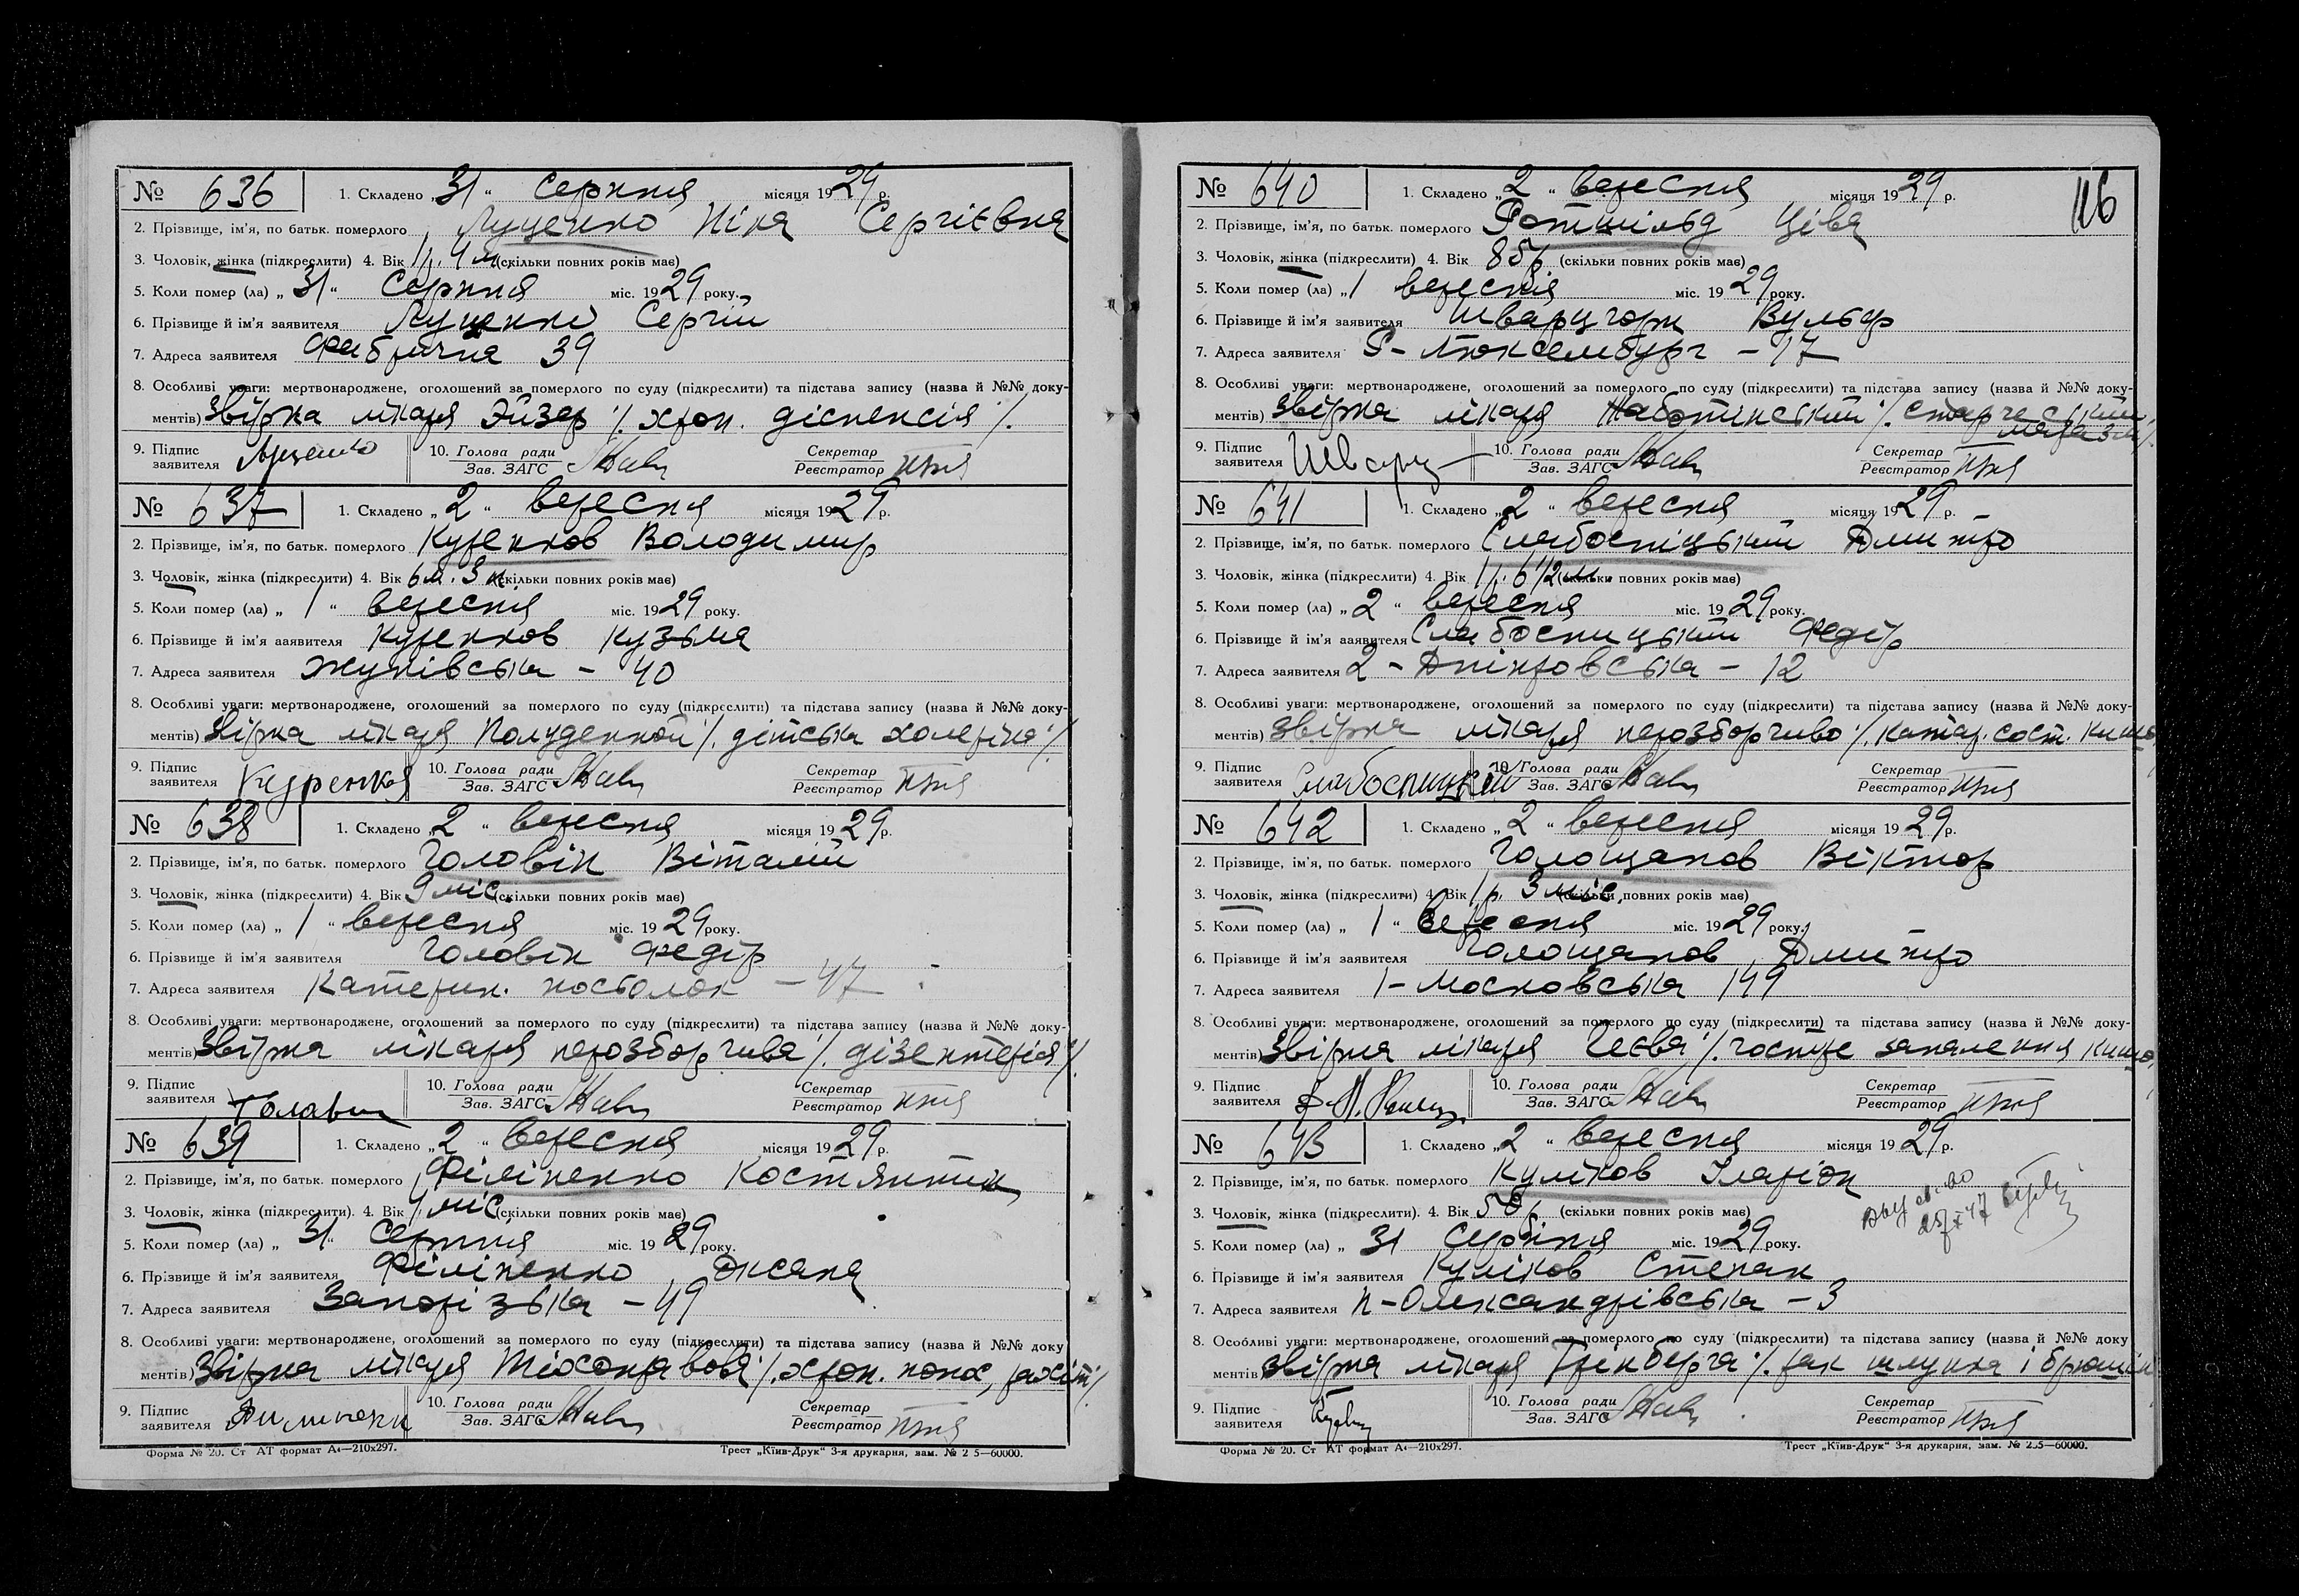 № 636 1. Складено „31“ серпня місяця 1929 р.
2. Прізвище, ім'я, по батьк. померлого Луценко Ніна Сергієвна
3. Чоловік, жінка (підкреслити) 4. Вік 1 р. 4 м. (скільки повних років має)
5. Коли помер (ла) „31“ Серпня міс. 1929 року.
6. Прізвище й ім'я заявителя Луценко Сергій
7. Адреса заявителя Фабрична 39
8. Особливі уваги: мертвонароджене, оголошений за померлого по суду (підкреслити) та підстава запису (назва й №№ доку-
ментів) Звірка лікаря Эйзер /. хрон. діспепсія /.
9. Підпис заявителя Луценко 10. Голова ради Зав. ЗАГС Секретар Реєстратор
№ 637 1. Складено „2“ вересня місяця 1929 р.
2. Прізвище, ім'я, по батьк. померлого Куренков Володимир
3. Чоловік, жінка (підкреслити) 4. Вік 6 м. 3 (скільки повних років має)
5. Коли помер (ла) „1“ вересня міс. 1929 року.
6. Прізвище й ім'я заявителя Куренков Кузьма
7. Адреса заявителя Жуківська - 40
8. Особливі уваги: мертвонароджене, оголошений за померлого по суду (підкреслити) та підстава запису (назва й №№ доку-
ментів) Звірка лікаря Полуденной /. дітська холеріна /.
9. Підпис заявителя Куренков 10. Голова ради Зав. ЗАГС Секретар Реєстратор
№ 638 1. Складено „2“ вересня місяця 1929 р.
2. Прізвище, ім'я, по батьк. померлого Головін Віталій
3. Чоловік, жінка (підкреслити) 4. Вік 9 міс. (скільки повних років має)
5. Коли помер (ла) „1“ вересня міс. 1929 року.
6. Прізвище й ім'я заявителя Головін Федір
7. Адреса заявителя Катерин. посьолок - 47
8. Особливі уваги: мертвонароджене, оголошений за померлого по суду (підкреслити) та підстава запису (назва й №№ доку-
ментів) Звірка лікаря нерозборчива /. дізентерія /.
9. Підпис заявителя Головин 10. Голова ради Зав. ЗАГС Секретар Реєстратор
№ 639 1. Складено „2“ вересня місяця 1929 р.
2. Прізвище, ім'я, по батьк. померлого Філіпенко Костянтин
3. Чоловік, жінка (підкреслити). 4. Вік міс (скільки повних років має)
5. Коли помер (ла) „31“ Серпня міс. 1929 року.
6. Прізвище й ім'я заявителя Філіпенко Оксана
7. Адреса заявителя Запорізька - 49
8. Особливі уваги: мертвонароджене, оголошений за померлого по суду (підкреслити) та підстава запису (назва й №№ доку
ментів) Звірка лікаря /. хрон. понос, рахіт /.
9. Підпис заявителя 10. Голова ради Зав. ЗАГС Секретар Реєстратор
Форма № 20. Ст АТ формат А4—210x297. Трест „Київ-Друк“ 3-я друкарня, зам. № 2 5—60000.
116
№ 640 1. Складено „2“ вересня місяця 1929 р.
2. Прізвище, ім'я, по батьк. померлого Ротшільд Ціва
3. Чоловік, жінка (підкреслити) 4. Вік 85 р. (скільки повних років має)
5. Коли помер (ла) „1 вересня міс. 1929 року.
6. Прізвище й ім'я заявителя Шварцгорн Вульф
7. Адреса заявителя Р - Люксембург - 17
8. Особливі уваги: мертвонароджене, оголошений за померлого по суду (підкреслити) та підстава запису (назва й №№ доку-
ментів) Звірка лікаря /. старческий
маразм /.
9. Підпис заявителя Шварц 10. Голова ради Зав. ЗАГС Секретар Реєстратор
№ 641 1. Складено „2“ вересня місяця 1929 р.
2. Прізвище, ім'я, по батьк. померлого Слабоспіцький Дмитро
3. Чоловік, жінка (підкреслити) 4. Вік 1 р. 6 1/2 м. (скільки повних років має)
5. Коли помер (ла) „2“ вересня міс. 1929 року.
6. Прізвище й ім'я заявителя Слабоспицький Федір
7. Адреса заявителя 2 - Дніпровська - 12
8. Особливі уваги: мертвонароджене, оголошений за померлого по суду (підкреслити) та підстава запису (назва й №№ доку-
ментів) Звірка лікаря нерозборчиво /. катар. сост. кишо
9. Підпис заявителя Слабоспицкий 10 Голова ради Зав. ЗАГС Секретар Реєстратор
№ 642 1. Складено „2“ вересня місяця 1929 р.
2. Прізвище, ім'я, по батьк. померлого Голощапов Віктор
3. Чоловік, жінка (підкреслити) 4. Вік 1 р. 3 міс. (скільки повних років має)
5. Коли помер (ла) „1“ Вересня міс. 1929 року.
6. Прізвище й ім'я заявителя Голощапов Дмитро
7. Адреса заявителя 1 - Московська 149
8. Особливі уваги: мертвонароджене, оголошений за померлого по суду (підкреслити) та підстава запису (назва й №№ доку-
ментів) Звірка лікаря /. гостре запалення кишо
9. Підпис заявителя 10. Голова ради Зав. ЗАГС Секретар Реєстратор
№ 643 1. Складено „2“ вересня місяця 1929 р.
2. Прізвище, ім'я, по батьк. померлого Куліков Іларіон
3. Чоловік, жінка (підкреслити). 4. Вік 58 р. (скільки повних років має)
5. Коли помер (ла) „31 Серпня міс. 1929 року.
6. Прізвище й ім'я заявителя Куліков Степан
7. Адреса заявителя п - Олександрівська - 3
8. Особливі уваги: мертвонароджене, оголошений за померлого по суду (підкреслити) та підстава запису (назва й №№ доку
ментів) Звірка лікаря Грінберга /. рак шлунка і брюшін
9. Підпис заявителя 10. Голова ради Зав. ЗАГС Секретар Реєстратор
Форма № 20. Ст АТ формат А4—210x297. Трест „Київ-Друк“ 3-я друкарня, зам. № 2.5—60000.